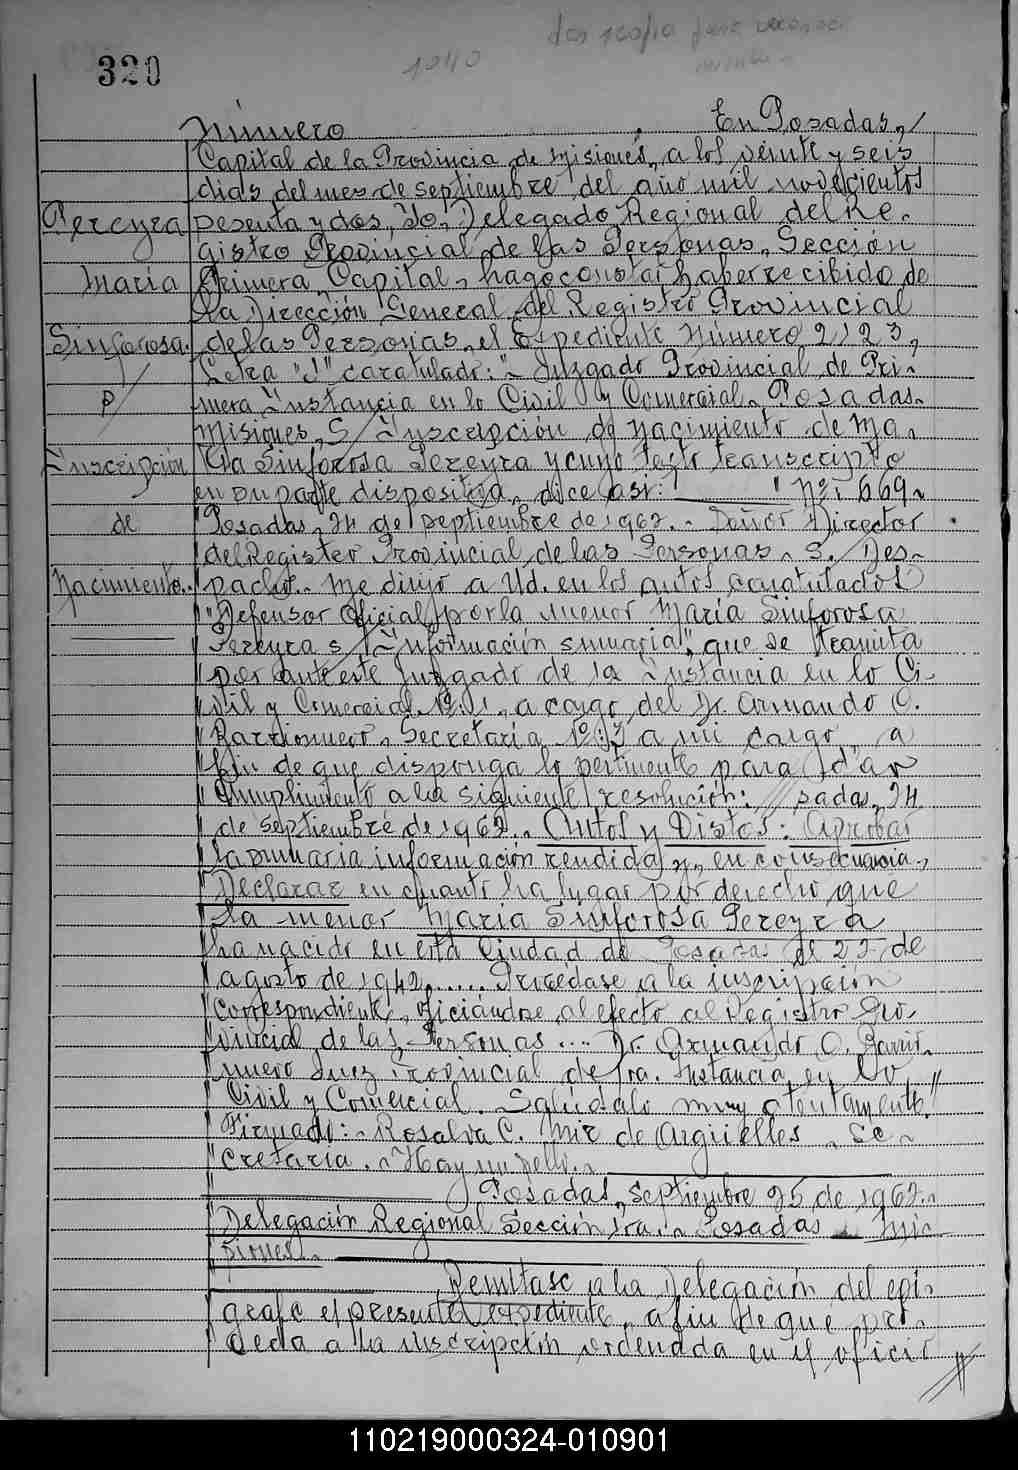 320
1940
Número . En Posadas,
Capital de la Provincia de Misiones, a los veinte y seis
dias del mes de septiembre del año mil novecientos
Pereyra sesenta y dos, Yo, Delegado Regional del Re-
gistro Provincial de las Personas, Sección
María Primera, Capital, hago constar haber recibido de
la Dirección General del Registro Provincial
Sinforosa. de las Personas, el Expediente Número 2123,
Letra "J" caratulado: "Juzgado Provincial de Pri-
P/ mera Instancia en lo Civil y Comercial. Posadas.
Misiones, S/ Inscripción de nacimiento de Ma-
Inscripción ría Sinforosa Pereyra y cuyo texto transcripto
en su parte dispositiva, dice asi: "Nº 669-
de "Posadas, 24 de septiembre de 1962. Señor Director
del Register Provincial de las Personas. S./ Des-
Nacimiento. pacho. Me dirijo a Ud. en los autos caratulados
"Defensor Oficial por la menor María Sinforosa
Pereyra s/ Información sumaria", que se tramita
"por ante este Juzgado de 1a Instancia en lo Ci-
vil y Comercial Nº 1, a cargo del Dr. Armando O.
"Barrionuevo, Secretaría Nº a mi cargo, a
"fin de que disponga lo pertinente para dar
"cumplimiento a la siguiente resolución: // sadas, 24
de septiembre de 1962. Autos y Vistos: Aprobar
la sumaria información rendida y, en consecuencia,
"Declarar en cuanto ha lugar por derecho, que
"la menor María Sinforosa Pereyra
ha nacido en esta Ciudad de Posadas el 23 de
"agosto de 1942...... Procédase a la inscripción
"correspondiente, oficiándose al efecto al Registro Pro-
"vincial de las Personas... Dr. Armando O. Barrio-
"nuevo Juez Provincial de 1ra. Instancia en lo
"Civil y Comercial. Salúdalo muy atentamente."
"Firmado: - Rosalva C. Mir de Argüelles - Se-
"cretaria. - Hay un sello. -
" Posadas, septiembre 25 de 1962.-
"Delegación Regional Sección 1ra. - Posadas - Mi-
siones. -
Remítase a la Delegación del epí-
"grafe el presente expediente, a fin de que pro-
ceda a la inscripción ordenada en el oficio
110219000324-010901